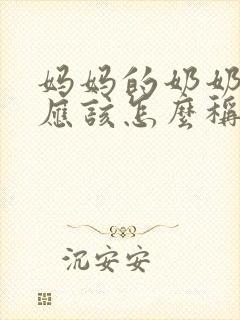 妈妈的奶奶
应该怎麼稱
沉安安